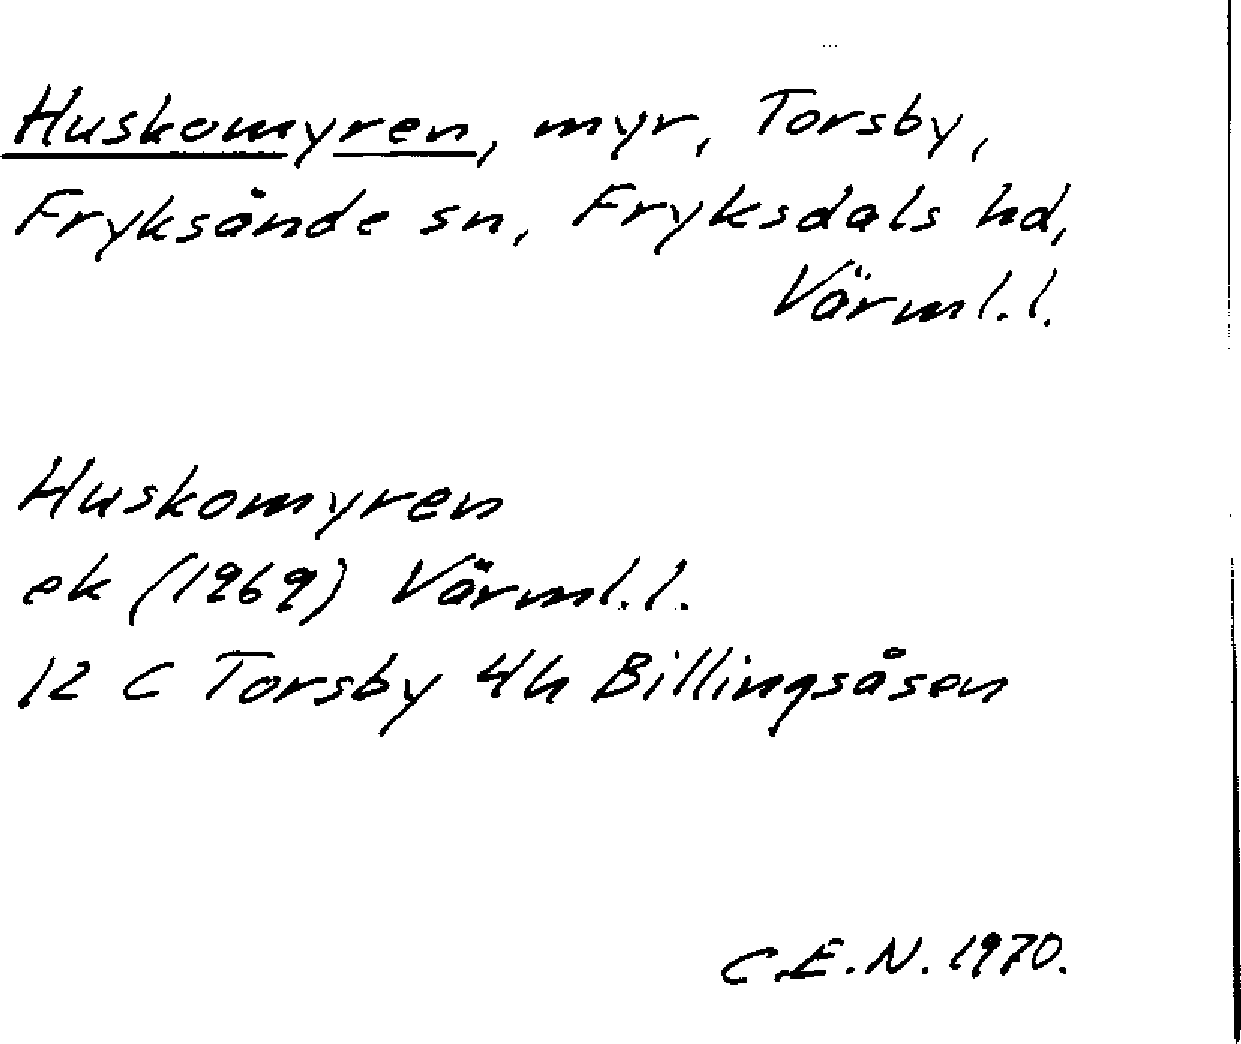 Huskomyren, myr, Torsby,
Fryksände sn, Fryksdals hd,
Värml.l.
Huskomyren
ek (1969) Värml.l.
12 C Torsby 4h Billingsåsen
C.E.N. 1970.